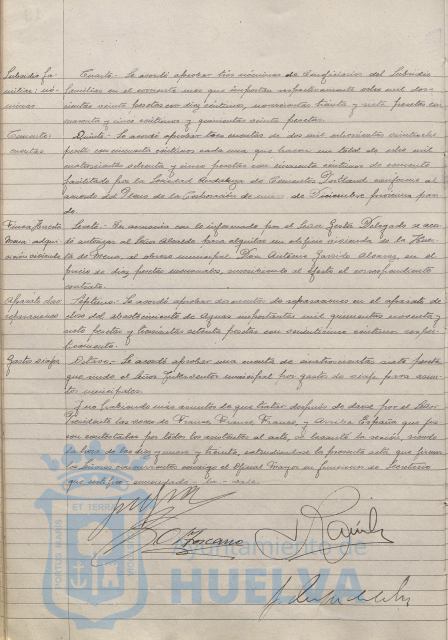 Subsidio fa-
miliar: nó-
minas
Cuarto.- Se acordó aprobar tres nóminas de beneficiarios del Subsidio
familiar en el corriente mes que importan respectivamente ocho mil dos-
cientas veinte pesetas con diez céntimos, novecientas treinta y siete pesetas con
cuarenta y cinco céntimos y quinientas veinte pesetas.
Cemento:
cuentas
Quinto.- Se acordó aprobar
pesetas con cincuenta céntimos cada una que hacen un total de ocho mil
cuatrocientas ochenta y cinco pesetas con cincuenta céntimos de cemento
facilitado por la Sociedad Andaluza de Cementos Portland conforme al
acuerdo del Pleno de la Corporación de de Diciembre próximo pasa-
do.
Finca Huerta
Mena: alqui-
Sexto.- De armonía con lo informado por el Sr. Gestor Delegado se acor-
dó autorizar al Señor Alcalde para alquilar en vivienda de la Huer-
ta de Mena, al obrero municipal Don Antonio Garrido Alvarez, en el
precio de diez pesetas mensuales, suscribiendo al efecto el correspondiente
contrato.
reparaciones
Séptimo.- Se acordó aprobar de reparaciones en el aparato de
cloro del abastecimiento de Aguas importantes mil quinientas noventa y
siete pesetas y trescientas setenta pesetas con céntimos res-
pectivamente.
Gastos viajes
Octavo.- Se acordó aprobar una cuenta de pesetas
que rinde el Señor Interventor municipal por gastos de viaje para asun-
tos municipales.
Y no habiendo más asuntos de que tratar después de darse por el Señor
Presidente las voces de Franco, Franco, Franco, y Arriba España que fue-
ron contestadas por todos los asistentes al acto, se levantó la sesión, siendo
la hora de las diez y nueve y treinta, extendiéndose la presente acta que firman
los Señores concurrentes conmigo el Oficial Mayor en funciones de Secretario
que certifico.
PORTUS MARIS
ET TERRAE
Ayuntamiento de
HUELVA